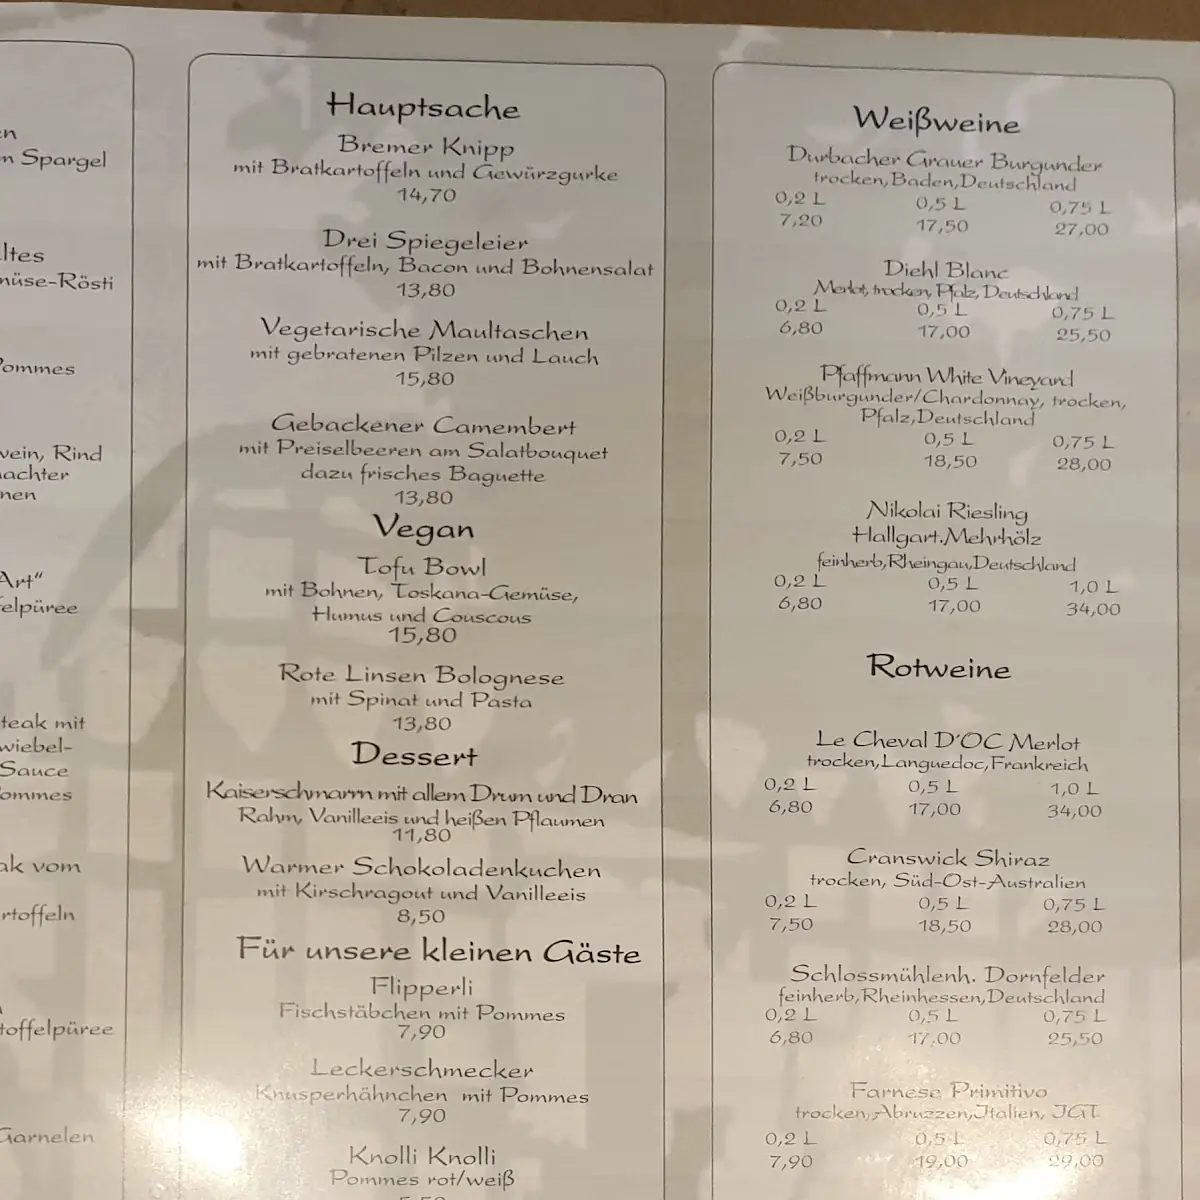 Spargel
ltes
müse-Rösti
Pommes
wein, Rind
achter
nen
Art“
felpüree
teak mit
wiebel-
Sauce
ommes
ak vom
rtoffeln
toffelpüree
Garnelen
Hauptsache
Bremer Knipp
mit Bratkartoffeln und Gewürzgurke
14,70
Drei Spiegeleier
mit Bratkartoffeln, Bacon und Bohnensalat
13,80
Vegetarische Maultaschen
mit gebratenen Pilzen und Lauch
15,80
Gebackener Camembert
mit Preiselbeeren am Salatbouquet
dazu frisches Baguette
13,80
Vegan
Tofu Bowl
mit Bohnen, Toskana-Gemüse,
Humus und Couscous
15,80
Rote Linsen Bolognese
mit Spinat und Pasta
13,80
Dessert
Kaiserschmarrn mit allem Drum und Dran
Rahm, Vanilleeis und heißen Pflaumen
11,80
Warmer Schokoladenkuchen
mit Kirschragout und Vanilleeis
8,50
Für unsere kleinen Gäste
Flipperli
Fischstäbchen mit Pommes
7,90
Leckerschmecker
Knusperhähnchen mit Pommes
7,90
Knolli Knolli
Pommes rot/weiß
Weißweine
Durbacher Grauer Burgunder
trocken,Baden,Deutschland
0,2 L 0,5 L 0,75 L
7,20 17,50 27,00
Diehl Blanc
Merlot, trocken, Pfalz, Deutschland
0,2 L 0,5 L 0,75 L
6,80 17,00 25,50
Pfaffmann White Vineyard
Weißburgunder/Chardonnay, trocken,
Pfalz,Deutschland
0,2 L 0,5 L 0,75 L
7,50 18,50 28,00
Nikolai Riesling
Hallgart.Mehrhölz
feinherb,Rheingau,Deutschland
0,2 L 0,5 L 1,0 L
6,80 17,00 34,00
Rotweine
Le Cheval D'OC Merlot
trocken,Languedoc,Frankreich
0,2 L 0,5 L 1,0 L
6,80 17,00 34,00
Cranswick Shiraz
trocken, Süd-Ost-Australien
0,2 L 0,5 L 0,75 L
7,50 18,50 28,00
Schlossmühlenh. Dornfelder
feinherb,Rheinhessen,Deutschland
0,2 L 0,5 L 0,75 L
6,80 17,00 25,50
Farnese Primitivo
trocken,Abruzzen,Italien, IGT
0,2 L 0,5 L 0,75 L
7,90 19,00 29,00